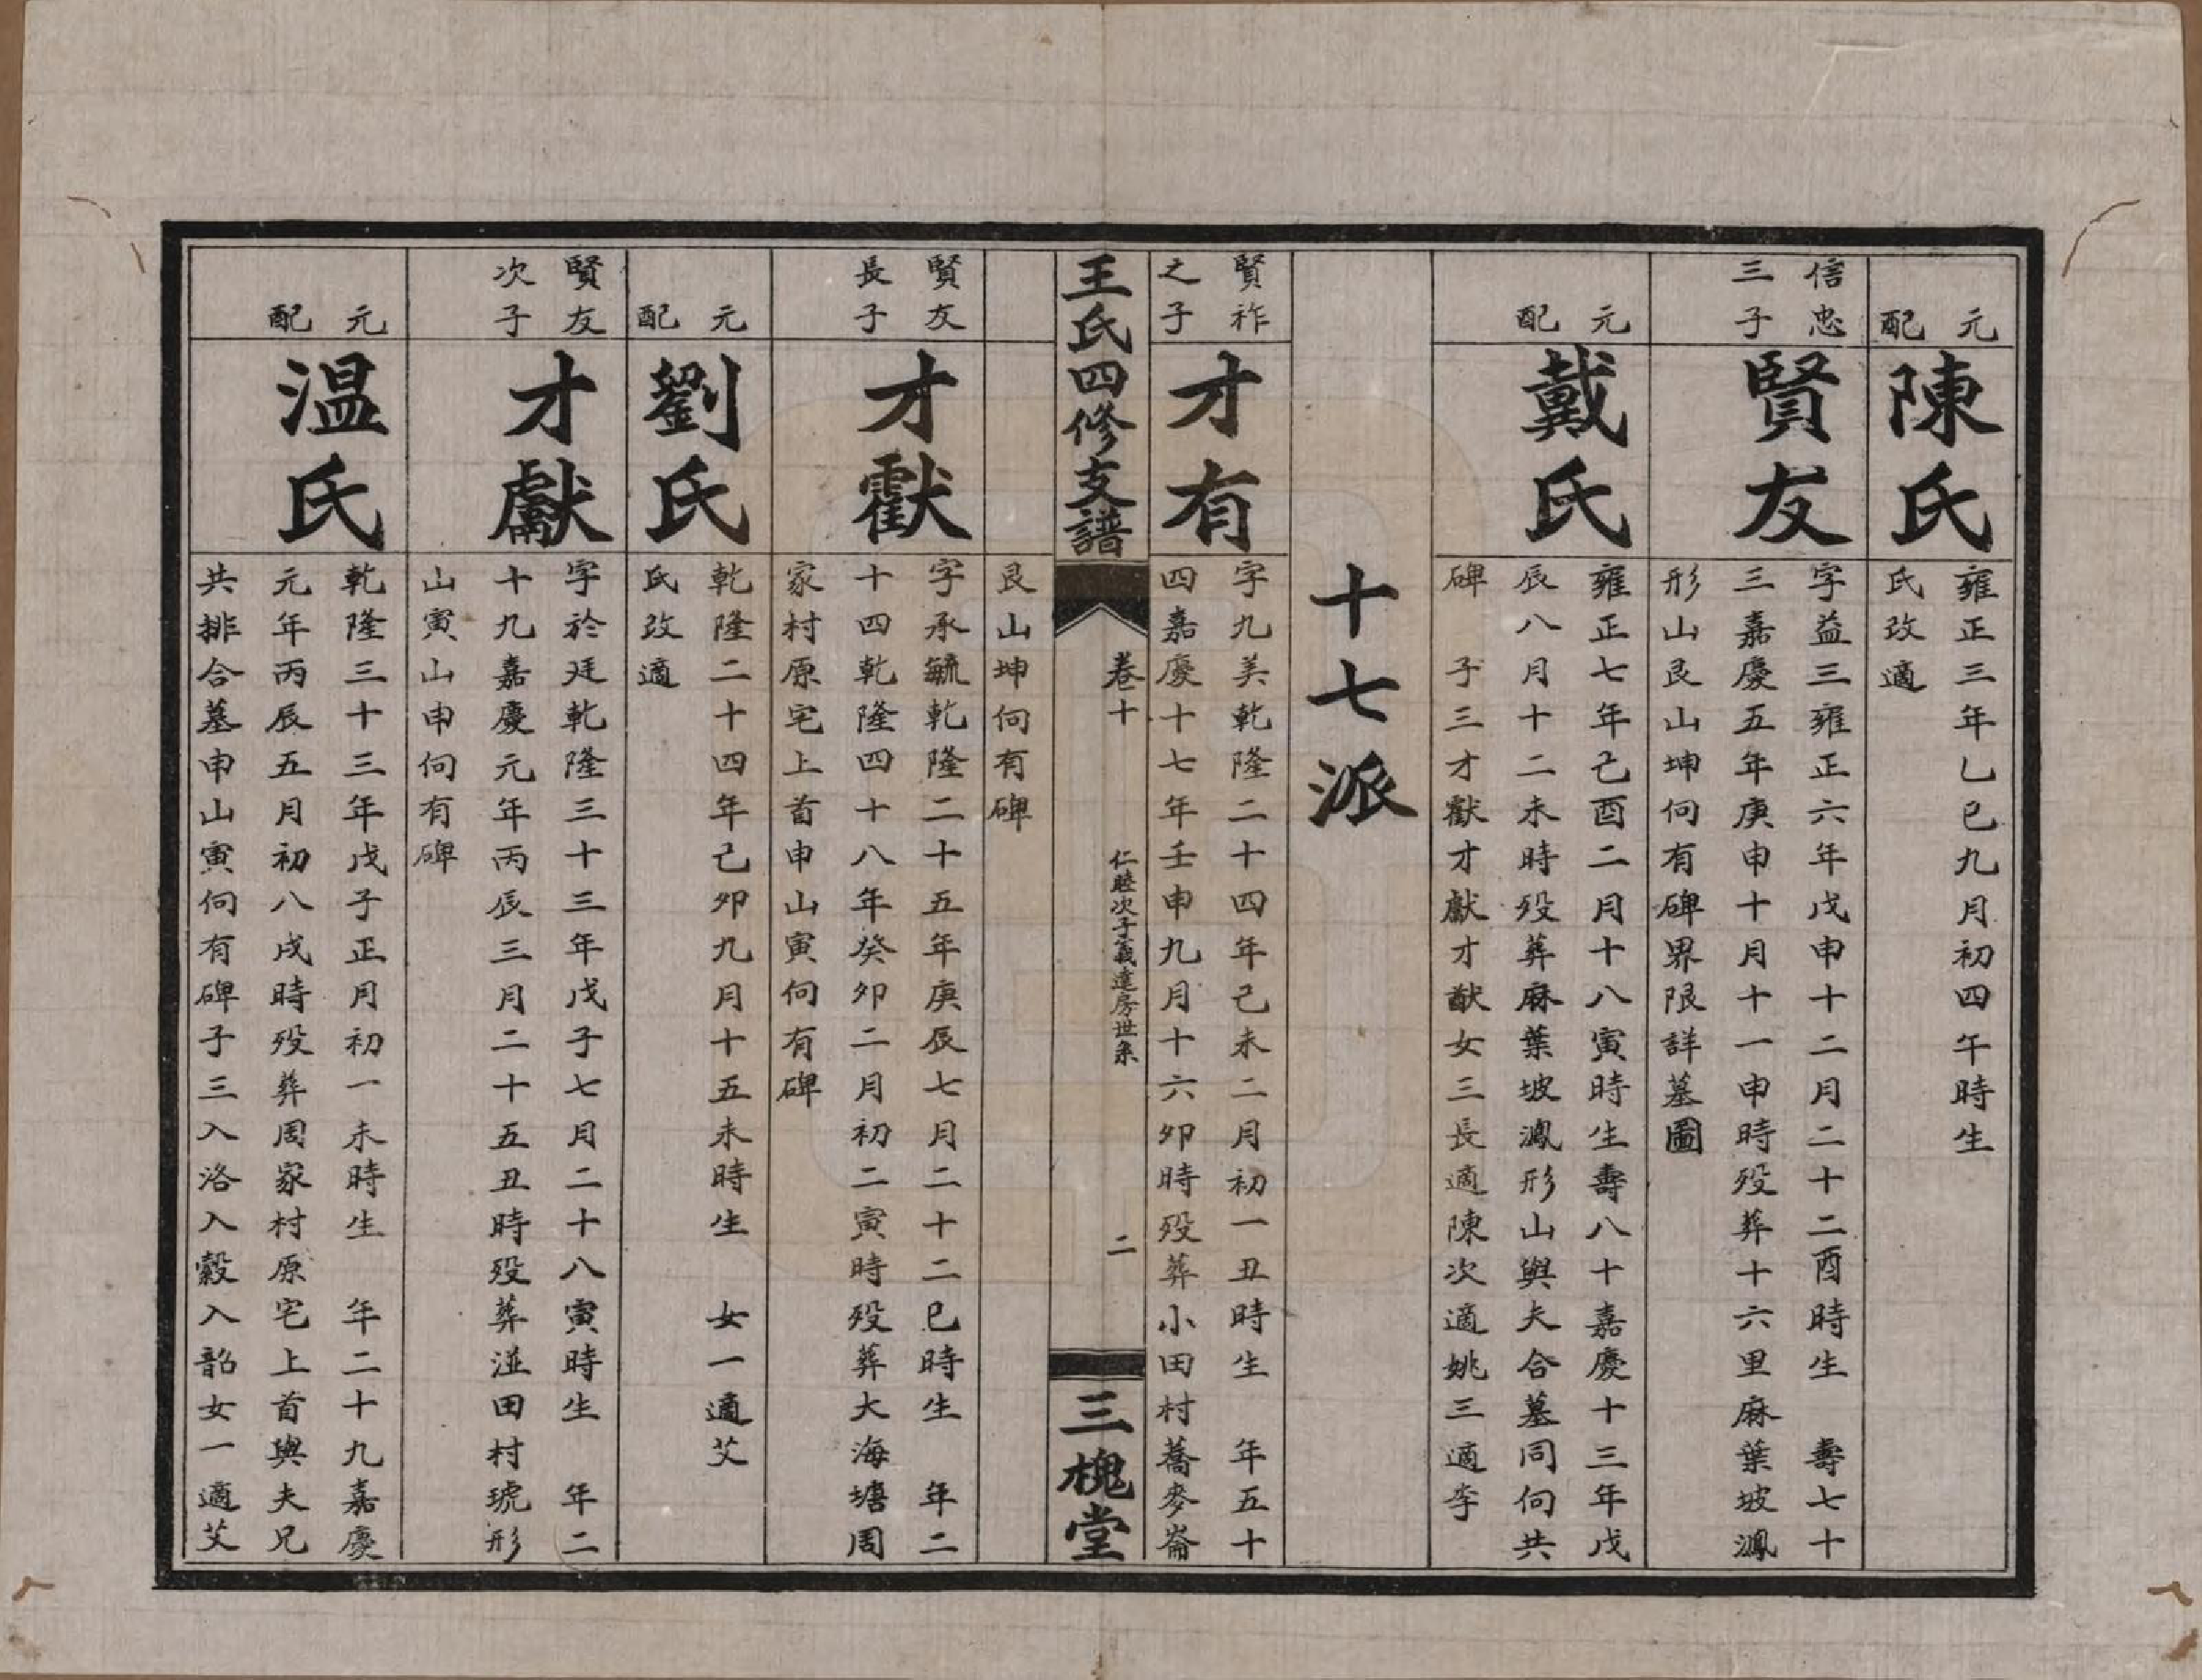 元配
陳氏
雍正三年乙巳九月初四午時生
氏改適
信忠
三子
賢友
字益三雍正六年戊申十二月二十二酉時生　壽七十
三嘉慶五年庚申十月十一申時歿葬十六里麻葉坡鳳
形山艮山坤向有碑界限詳墓圖
元配
戴氏
雍正七年己酉二月十八寅時生壽八十嘉慶十三年戊
辰八月十二未時歿葬麻葉坡鳳形山與夫合墓同向共
碑　子三才歡才獻才猷女三長適陳次適姚三適李
十七派
賢祚
之子
才有
字九美乾隆二十四年己未二月初一丑時生　年五十
四嘉慶十七年壬申九月十六卯時歿葬小田村蕎麥崙
王氏四修支譜
卷十
仁睦次子義達房世系
二
三槐堂
艮山坤向有碑
賢友
長子
才歡
字承毓乾隆二十五年庚辰七月二十二巳時生　年二
十四乾隆四十八年癸卯二月初二寅時歿葬大海塘周
家村原宅上首申山寅向有碑
元配
劉氏
乾隆二十四年己卯九月十五未時生　女一適艾
氏改適
賢友
次子
才獻
字於廷乾隆三十三年戊子七月二十八寅時生　年二
十九嘉慶元年丙辰三月二十五丑時歿葬湴田村琥形
山寅山申向有碑
元配
温氏
乾隆三十三年戊子正月初一未時生　年二十九嘉慶
元年丙辰五月初八戌時歿葬周家村原宅上首與夫兄
共排合墓申山寅向有碑子三入洛入穀入韶女一適艾